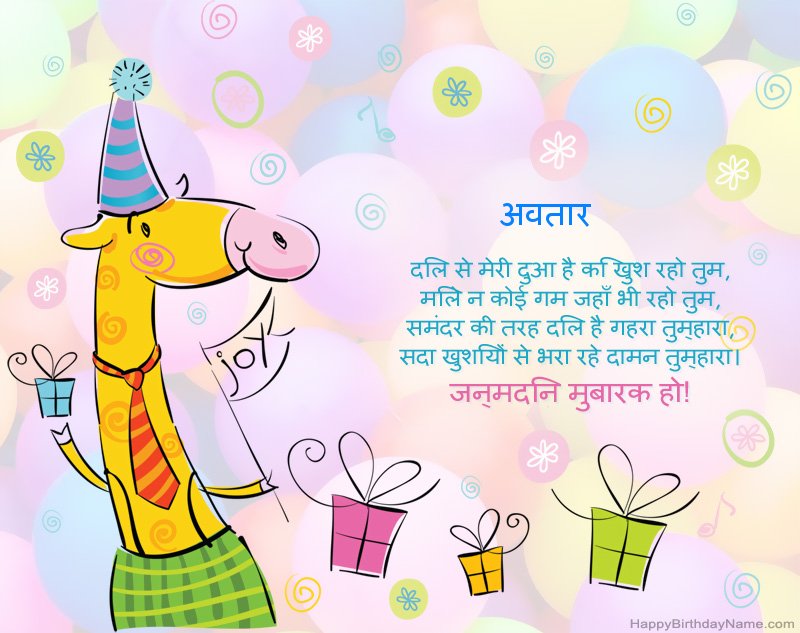 अवतार
दिल से मेरी दुआ है कि खुश रहो तुम,
मिले न कोई गम जहाँ भी रहो तुम,
समंदर की तरह दिल है गहरा तुम्हारा,
सदा खुशियों से भरा रहे दामन तुम्हारा।
जन्मदिन मुबारक हो!
joy
HappyBirthdayName.com